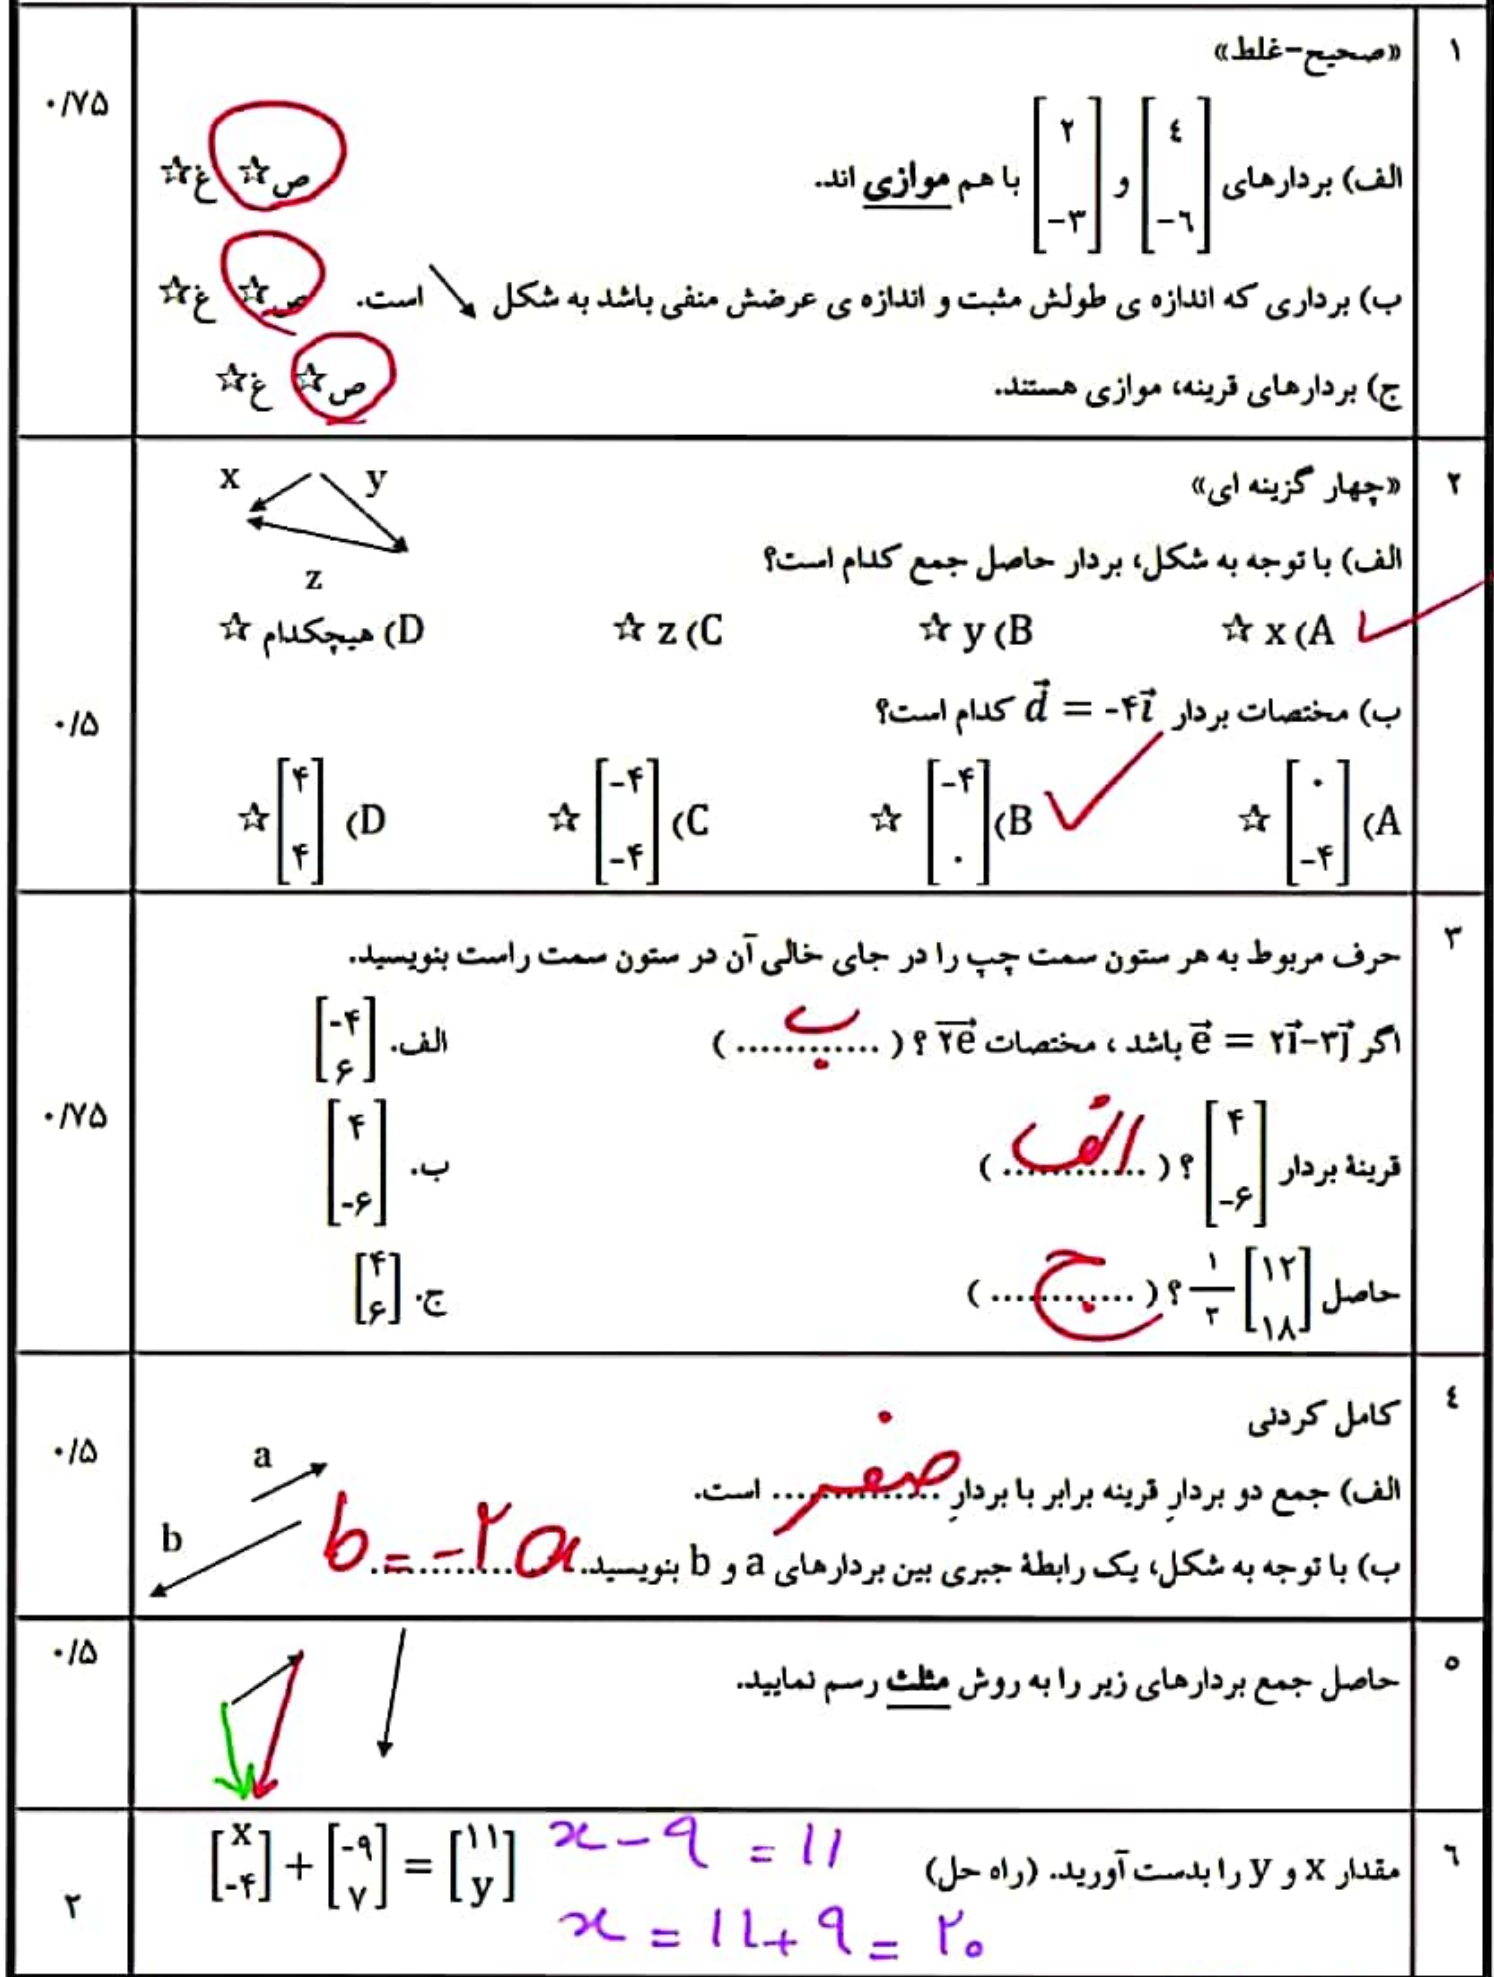 ۱
«صحیح-غلط»
۰/۷۵
الف) بردارهای [٤ -٦] و [۲ -۳] با هم موازی اند. ص☆ غ☆
ب) برداری که اندازه ی طولش مثبت و اندازه ی عرضش منفی باشد به شکل ↘ است. ص☆ غ☆
ج) بردارهای قرینه، موازی هستند. ص☆ غ☆
۲
«چهار گزینه ای»
x y
z
الف) با توجه به شکل، بردار حاصل جمع کدام است؟
A) x ☆ B) y ☆ C) z ☆ D) هیچکدام ☆
ب) مختصات بردار d⃗ = -۴i⃗ کدام است؟
۰/۵
A) [۰ -۴] ☆ B) [-۴ ۰] ☆ C) [-۴ -۴] ☆ D) [۴ ۴] ☆
۳
حرف مربوط به هر ستون سمت چپ را در جای خالی آن در ستون سمت راست بنویسید.
اگر e⃗ = ۲i⃗-۳j⃗ باشد ، مختصات ۲e⃗ ؟ (.............) ب الف. [-۴ ۶]
۰/۷۵
قرینهٔ بردار [۴ -۶] ؟ (.............) الف ب. [۴ -۶]
حاصل ۱/۳ [۱۲ ۱۸] ؟ (.............) ج ج. [۴ ۶]
٤
کامل کردنی
۰/۵
a
الف) جمع دو بردارِ قرینه برابر با بردارِ ............... صفر است.
b
ب) با توجه به شکل، یک رابطهٔ جبری بین بردارهای a و b بنویسید................... b = -۲a
۵
۰/۵
حاصل جمع بردارهای زیر را به روش مثلث رسم نمایید.
٦
مقدار x و y را بدست آورید. (راه حل) [x -۴] + [-۹ ۷] = [۱۱ y]
x - ۹ = ۱۱
x = ۱۱ + ۹ = ۲۰
۲